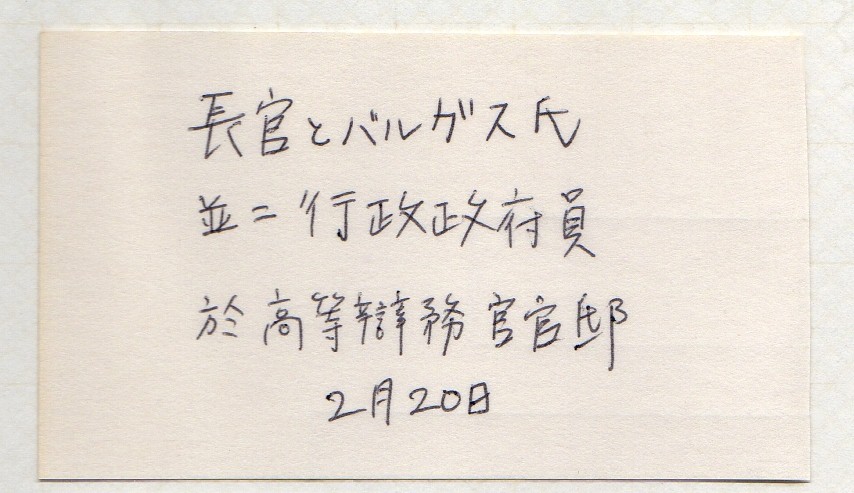 長官とバルガス氏
並ニ行政政府員
於高等辯務官官邸
2月20日